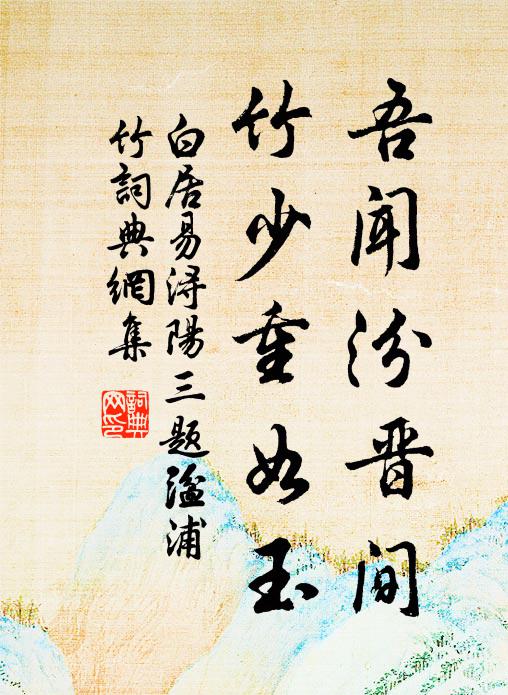 吾闻汾晋间
竹少重如玉
白居易浔陽三题湓浦
竹詞典網集
詞典
网印